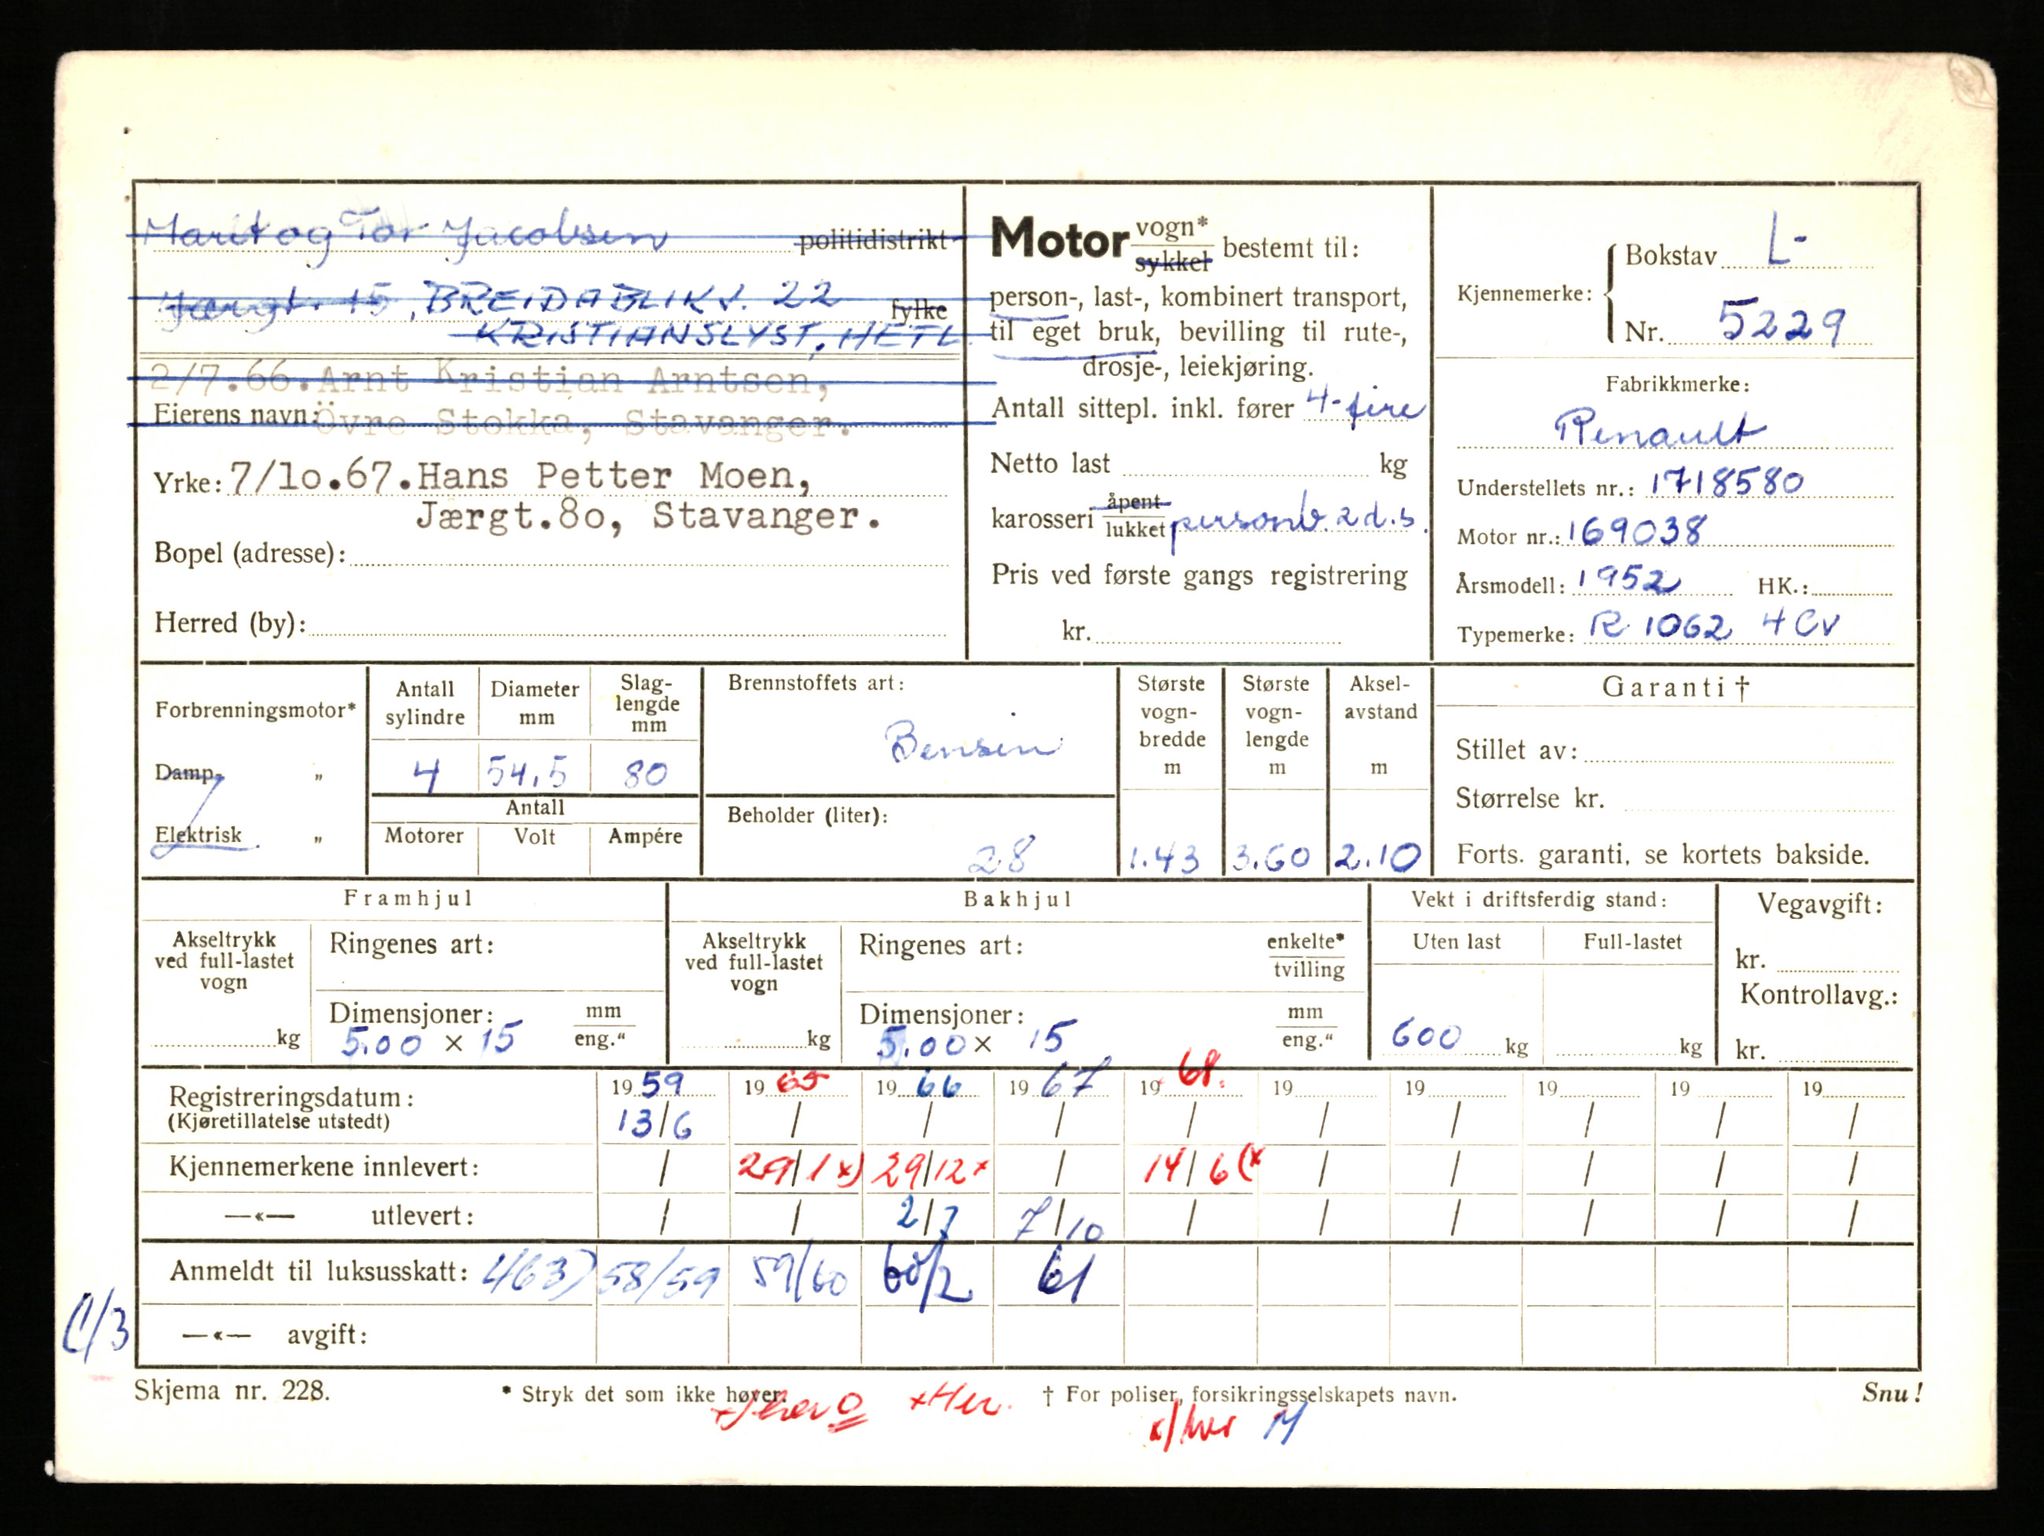 Marit og Tor Jacobsen politidistrikt
Jærgt. 15, BREIDABLIKV. 22 fylke
KRISTIANSLYST, HETL
2/7.66. Arnt Kristian Arntsen,
Eierens navn: Övre Stokka, Stavanger.
Yrke: 7/10.67. Hans Petter Moen,
Jærgt.80, Stavanger.
Bopel (adresse):
Herred (by):
Motor vogn* sykkel bestemt til:
person-, last-, kombinert transport,
til eget bruk, bevilling til rute-,
drosje-, leiekjøring.
Antall sittepl. inkl. fører 4-fire
Netto last kg
karosseri åpent lukket personb. 2 d.s.
Pris ved første gangs registrering
kr.
Kjennemerke: Bokstav L-
Nr. 5229
Fabrikkmerke:
Renault
Understellets nr.: 1718580
Motor nr.: 169038
Årsmodell: 1952 HK.:
Typemerke: R 1062 4 CV
Forbrenningsmotor*
Damp- „
Elektrisk „
Antall sylindre Diameter mm Slag-lengde mm
4 54,5 80
Antall
Motorer Volt Ampére
Brennstoffets art:
Bensin
Beholder (liter):
28
Største vogn-bredde m Største vogn-lengde m Aksel-avstand m
1.43 3.60 2.10
Garanti †
Stillet av:
Størrelse kr.
Forts. garanti, se kortets bakside.
Framhjul
Akseltrykk ved full-lastet vogn
kg
Ringenes art:
Dimensjoner: mm eng.“
5.00 × 15
Bakhjul
Akseltrykk ved full-lastet vogn
kg
Ringenes art: enkelte* tvilling
Dimensjoner: mm eng.“
5.00 × 15
Vekt i driftsferdig stand:
Uten last Full-lastet
600 kg kg
Vegavgift:
kr.
Kontrollavg.:
kr.
Registreringsdatum: 19 59 19 65 19 66 19 67 19 68. 19 19 19 19 19
(Kjøretillatelse utstedt) 13/6 / / / / / / / / /
Kjennemerkene innlevert: / 29/1 x) 29/12 x / 14/6 (x / / / / /
—«— utlevert: / / 2/7 7/10 / / / / / /
Anmeldt til luksusskatt: 4(63) 58/59 59/60 60/2 61
—«— avgift:
Skjema nr. 228. * Stryk det som ikke høver. † For poliser, forsikringsselskapets navn. Snu!